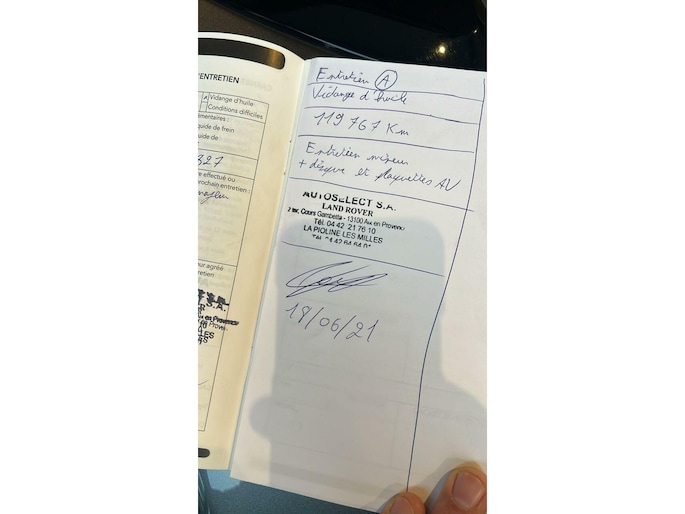 'ENTRETIEN
Vidange d'huile
Conditions difficiles
mentaires :
quide de frein
uide de :
327
e effectué ou
rochain entretien :
ur agréé
retien
Entretien A
Vidange d'huile
119 767 Km
Entretien mineur
+ disque et plaquettes AV
AUTOSELECT S.A.
LAND ROVER
ter, Cours Gambetta - 13100 Aix en Provence
Tél. 04 42 21 76 10
LA PIOLINE LES MILLES
Tél. 04 42 64 64 01
18/06/21